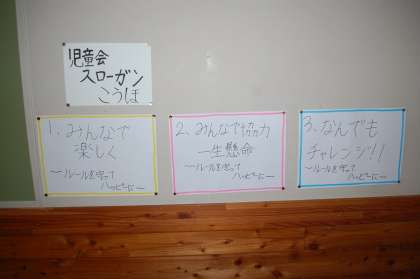 児童会
スローガン
こうほ
1. みんなで
楽しく
～ルールを守って
ハッピーに～
2. みんなで協力
一生懸命
～ルールを守って
ハッピーに～
3. なんでも
チャレンジ!!
～ルールを守って
ハッピーに～